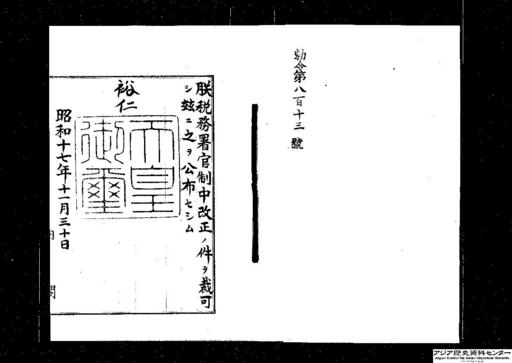 勅令第八百十三號
朕税務署官制中改正ノ件ヲ裁可
シ茲ニ之ヲ公布セシム
裕仁
天皇
御璽
昭和十七年十一月三十日
アジア歴史資料センター
Japan Center for Asian Historical Records